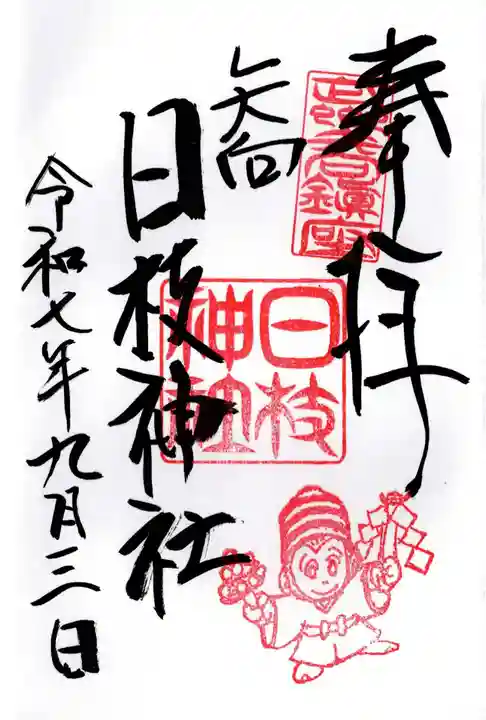 奉拝
鎮座
矢向
日枝神社
日枝
神社
令和七年九月三日